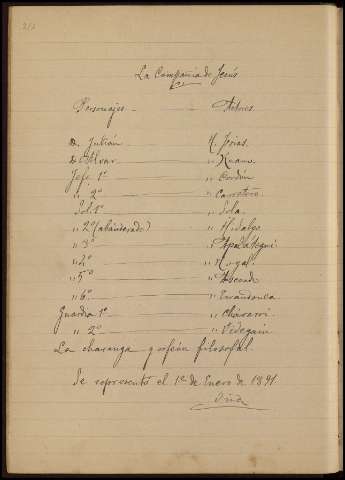 La Compañia de Jesús
Personajes Actores
D. Julián H. Isias.
D. Alvar "
Jefe 1º " Cordón
" 2º " Carretero
Sol. 1º " Sola
" 2º (abanderado) " Hidalgo
" 3º
" 4º " Nogal
" 5º
" 6º
Guardia 1º " Chávarri
" 2º " Videgain
La charanga y orfeón filosofal
Se representó el 1º de Enero de 1891